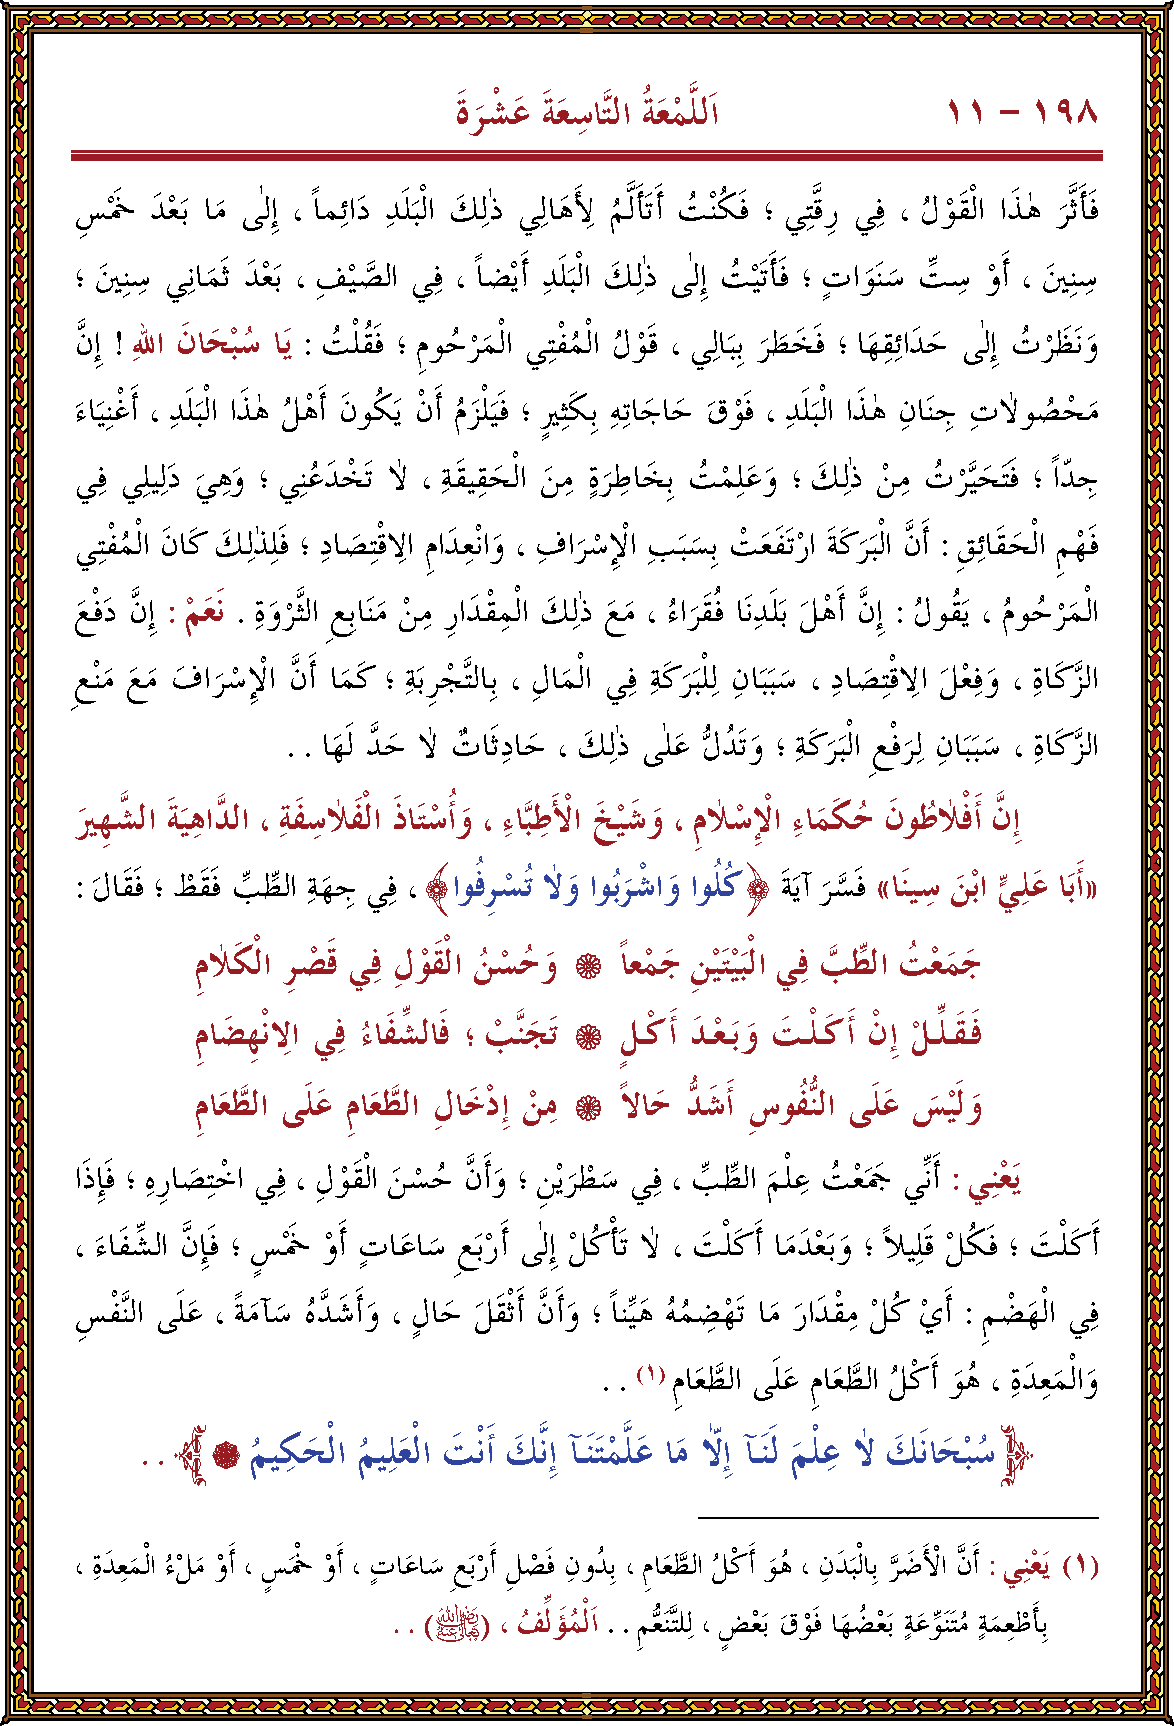 ١٩٨ – ١١ اَللَّمْعَةُ التَّاسِعَةَ عَشْرَةَ
فَأَثَّرَ هٰذَا الْقَوْلُ ، فِي رِقَّتِي ؛ فَكُنْتُ أَتَأَلَّمُ لِأَهَالِي ذٰلِكَ الْبَلَدِ دَائِماً ، إِلٰى مَا بَعْدَ خَمْسِ
سِنِينَ ، أَوْ سِتِّ سَنَوَاتٍ ؛ فَأَتَيْتُ إِلٰى ذٰلِكَ الْبَلَدِ أَيْضاً ، فِي الصَّيْفِ ، بَعْدَ ثَمَانِي سِنِينَ ؛
وَنَظَرْتُ إِلٰى حَدَائِقِهَا ؛ فَخَطَرَ بِبَالِي ، قَوْلُ الْمُفْتِي الْمَرْحُومِ ؛ فَقُلْتُ : يَا سُبْحَانَ اللهِ ! إِنَّ
مَحْصُولاٰتِ جِنَانِ هٰذَا الْبَلَدِ ، فَوْقَ حَاجَاتِهِ بِكَثِيرٍ ؛ فَيَلْزَمُ أَنْ يَكُونَ أَهْلُ هٰذَا الْبَلَدِ ، أَغْنِيَاءَ
جِدّاً ؛ فَتَحَيَّرْتُ مِنْ ذٰلِكَ ؛ وَعَلِمْتُ بِخَاطِرَةٍ مِنَ الْحَقِيقَةِ ، لاٰ تَخْدَعُنِي ؛ وَهِيَ دَلِيلِي فِي
فَهْمِ الْحَقَائِقِ : أَنَّ الْبَرَكَةَ ارْتَفَعَتْ بِسَبَبِ الْإِسْرَافِ ، وَانْعِدَامِ الِاقْتِصَادِ ؛ فَلِذٰلِكَ كَانَ الْمُفْتِي
الْمَرْحُومُ ، يَقُولُ : إِنَّ أَهْلَ بَلَدِنَا فُقَرَاءُ ، مَعَ ذٰلِكَ الْمِقْدَارِ مِنْ مَنَابِعِ الثَّرْوَةِ . نَعَمْ : إِنَّ دَفْعَ
الزَّكَاةِ ، وَفِعْلَ الِاقْتِصَادِ ، سَبَبَانِ لِلْبَرَكَةِ فِي الْمَالِ ، بِالتَّجْرِبَةِ ؛ كَمَا أَنَّ الْإِسْرَافَ مَعَ مَنْعِ
الزَّكَاةِ ، سَبَبَانِ لِرَفْعِ الْبَرَكَةِ ؛ وَتَدُلُّ عَلٰى ذٰلِكَ ، حَادِثَاتٌ لاٰ حَدَّ لَهَا . .
إِنَّ أَفْلاٰطُونَ حُكَمَاءِ الْإِسْلاٰمِ ، وَشَيْخَ الْأَطِبَّاءِ ، وَأُسْتَاذَ الْفَلاٰسِفَةِ ، الدَّاهِيَةَ الشَّهِيرَ
«أَبَا عَلِيٍّ ابْنَ سِينَا» فَسَّرَ آيَةَ ﴿كُلُوا وَاشْرَبُوا وَلاٰ تُسْرِفُوا﴾ ، فِي جِهَةِ الطِّبِّ فَقَطْ ؛ فَقَالَ :
جَمَعْتُ الطِّبَّ فِي الْبَيْتَيْنِ جَمْعاً ❁ وَحُسْنُ الْقَوْلِ فِي قَصْرِ الْكَلاٰمِ
فَقَلِّلْ إِنْ أَكَلْتَ وَبَعْدَ أَكْلٍ ❁ تَجَنَّبْ ؛ فَالشِّفَاءُ فِي الِانْهِضَامِ
وَلَيْسَ عَلَى النُّفُوسِ أَشَدُّ حَالاً ❁ مِنْ إِدْخَالِ الطَّعَامِ عَلَى الطَّعَامِ
يَعْنِي : أَنِّي جَمَعْتُ عِلْمَ الطِّبِّ ، فِي سَطْرَيْنِ ؛ وَأَنَّ حُسْنَ الْقَوْلِ ، فِي اخْتِصَارِهِ ؛ فَإِذَا
أَكَلْتَ ؛ فَكُلْ قَلِيلاً ؛ وَبَعْدَمَا أَكَلْتَ ، لاٰ تَأْكُلْ إِلٰى أَرْبَعِ سَاعَاتٍ أَوْ خَمْسٍ ؛ فَإِنَّ الشِّفَاءَ ،
فِي الْهَضْمِ : أَيْ كُلْ مِقْدَارَ مَا تَهْضِمُهُ هَيِّناً ؛ وَأَنَّ أَثْقَلَ حَالٍ ، وَأَشَدَّهُ سَآمَةً ، عَلَى النَّفْسِ
وَالْمَعِدَةِ ، هُوَ أَكْلُ الطَّعَامِ عَلَى الطَّعَامِ (١) . .
﴿سُبْحَانَكَ لاٰ عِلْمَ لَنَآ إِلاّٰ مَا عَلَّمْتَنَآ إِنَّكَ أَنْتَ الْعَلِيمُ الْحَكِيمُ ❁﴾ . .
(١) يَعْنِي : أَنَّ الْأَضَرَّ بِالْبَدَنِ ، هُوَ أَكْلُ الطَّعَامِ ، بِدُونِ فَصْلِ أَرْبَعِ سَاعَاتٍ ، أَوْ خَمْسٍ ، أَوْ مَلْءُ الْمَعِدَةِ ،
بِأَطْعِمَةٍ مُتَنَوِّعَةٍ بَعْضُهَا فَوْقَ بَعْضٍ ، لِلتَّنَعُّمِ . . اَلْمُؤَلِّفُ ، (رَضِيَ اللهُ تَعَالَى عَنْهُ) . .